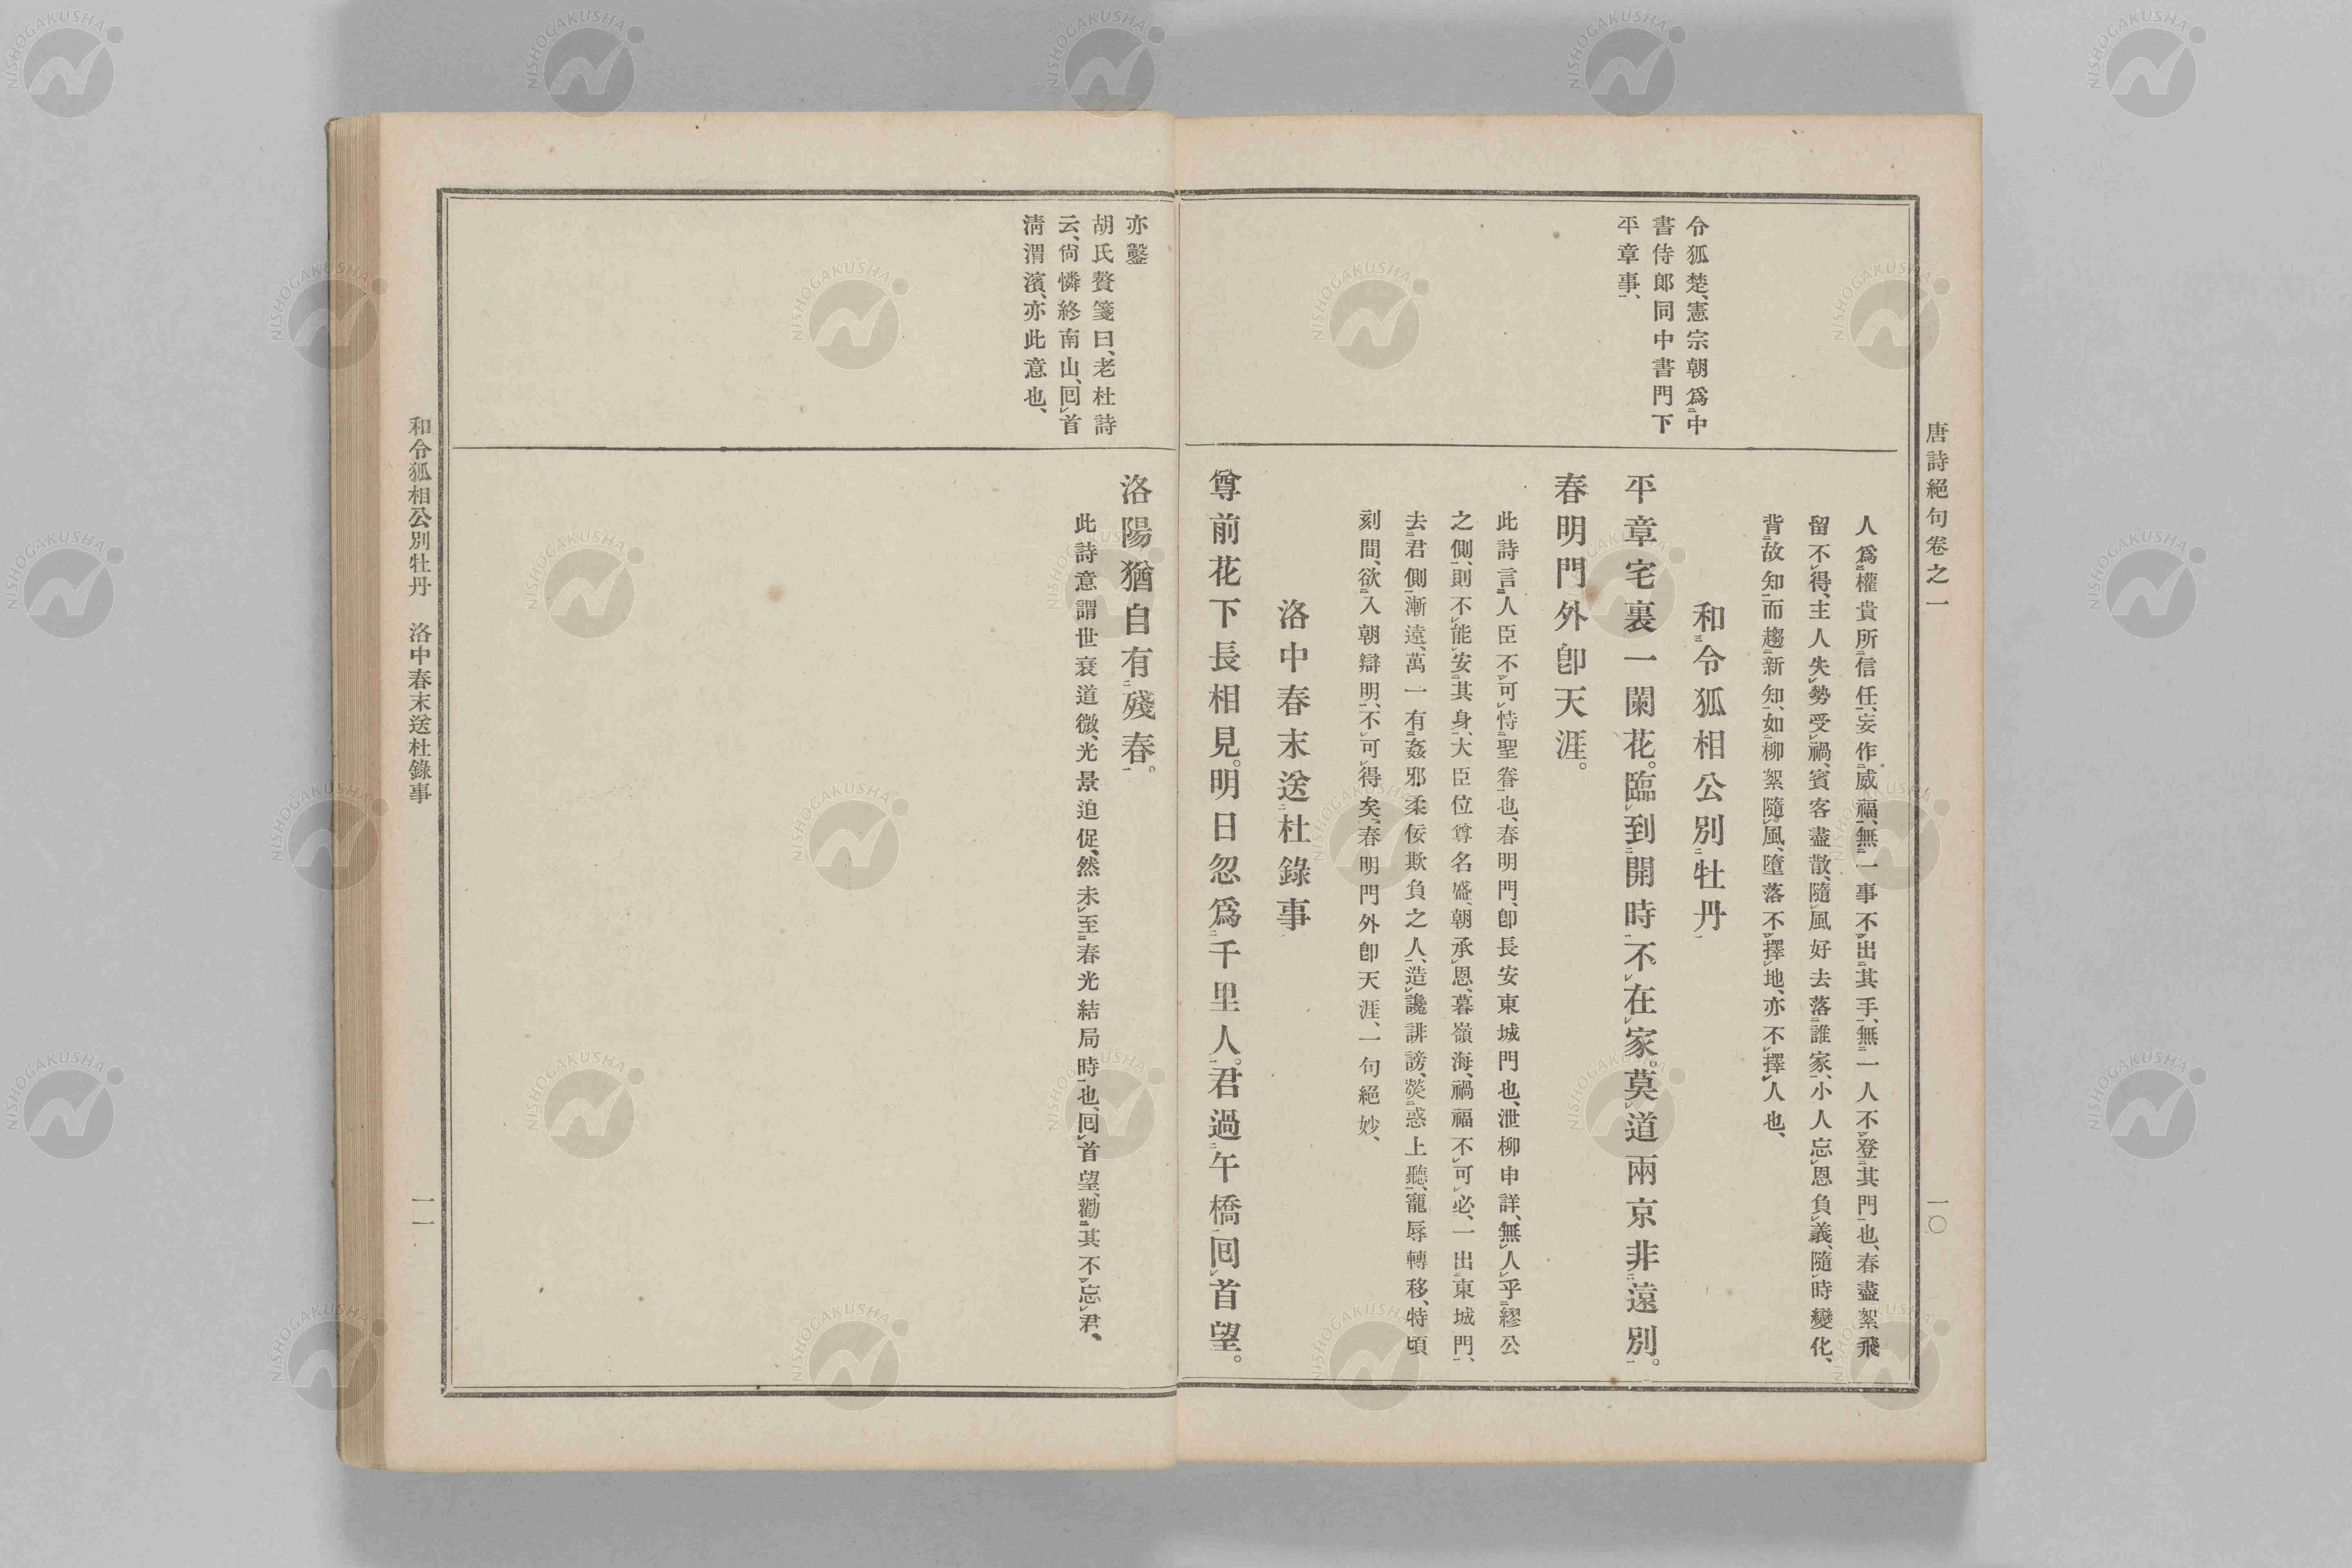 唐詩絕句卷之一
一〇
令狐楚、憲宗朝爲中
書侍郞同中書門下
平章事、
人爲權貴所信任、妄作威福、無一事不出其手、無一人不登其門也、春盡絮飛
留不得、主人失勢受禍、賓客盡散、隨風好去落誰家、小人忘恩負義、隨時變化、
背故知而趨新知、如柳絮隨風、墮落不擇地、亦不擇人也、
和令狐相公別牡丹
平章宅裏一闌花。臨到開時不在家。莫道兩京非遠別。
春明門外卽天涯。
此詩言人臣不可恃聖眷也、春明門、卽長安東城門也、泄柳申詳、無人乎繆公
之側、則不能安其身、大臣位尊名盛、朝承恩、暮嶺海、禍福不可必、一出東城門、
去君側漸遠、萬一有姦邪柔佞欺負之人、造讒誹謗、熒惑上聽、寵辱轉移、特頃
刻間、欲入朝辯明、不可得矣、春明門外卽天涯、一句絕妙、
洛中春末送杜錄事
尊前花下長相見。明日忽爲千里人。君過午橋回首望。
亦鑿
胡氏贅箋曰、老杜詩
云、尙憐終南山、回首
淸渭濱、亦此意也、
洛陽猶自有殘春。
此詩意謂世衰道微、光景迫促、然未至春光結局時也、回首望、勸其不忘君、
和令狐相公別牡丹 洛中春末送杜錄事
一一
NISHOGAKUSHA